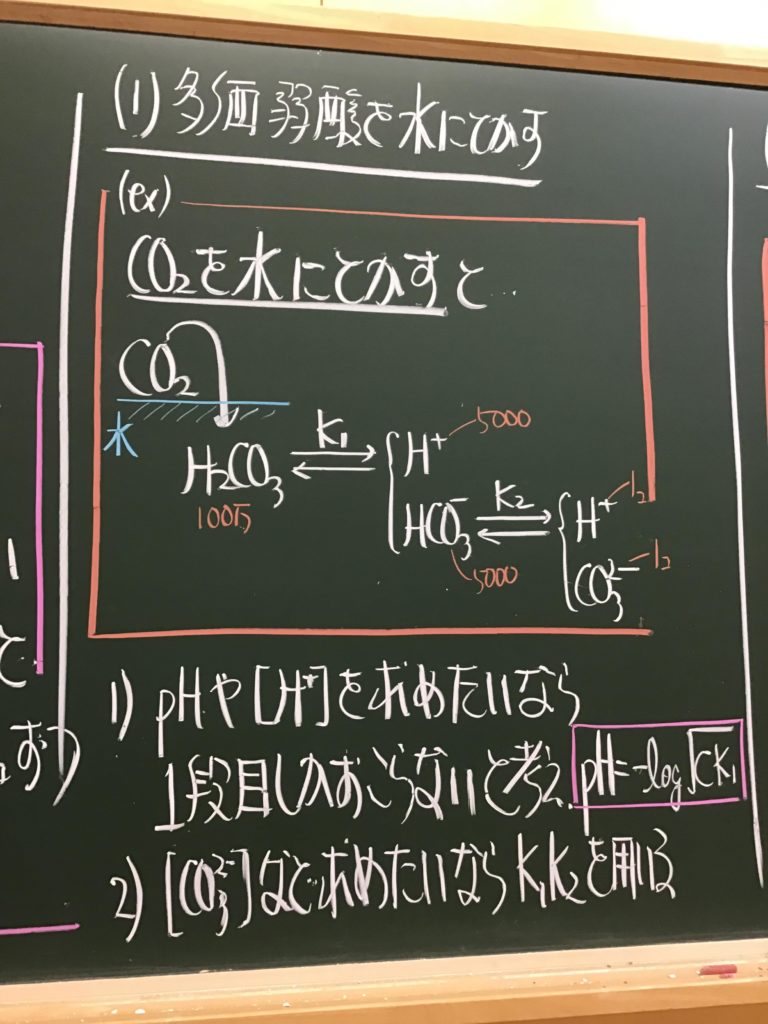 (1) 多価弱酸を水にとかす
(ex)
CO₂を水にとかすと…
CO₂
水
H₂CO₃ ⇄ K₁ H⁺ 5000
100万
HCO₃⁻ ⇄ K₂ H⁺ 1コ
5000
CO₃²⁻ 1コ
1) pHや[H⁺]を求めたいなら
1段目しかおこらないと考え. pH=-log√CK₁
2) [CO₃²⁻]など求めたいならK₁K₂を用いる
と
ずつ